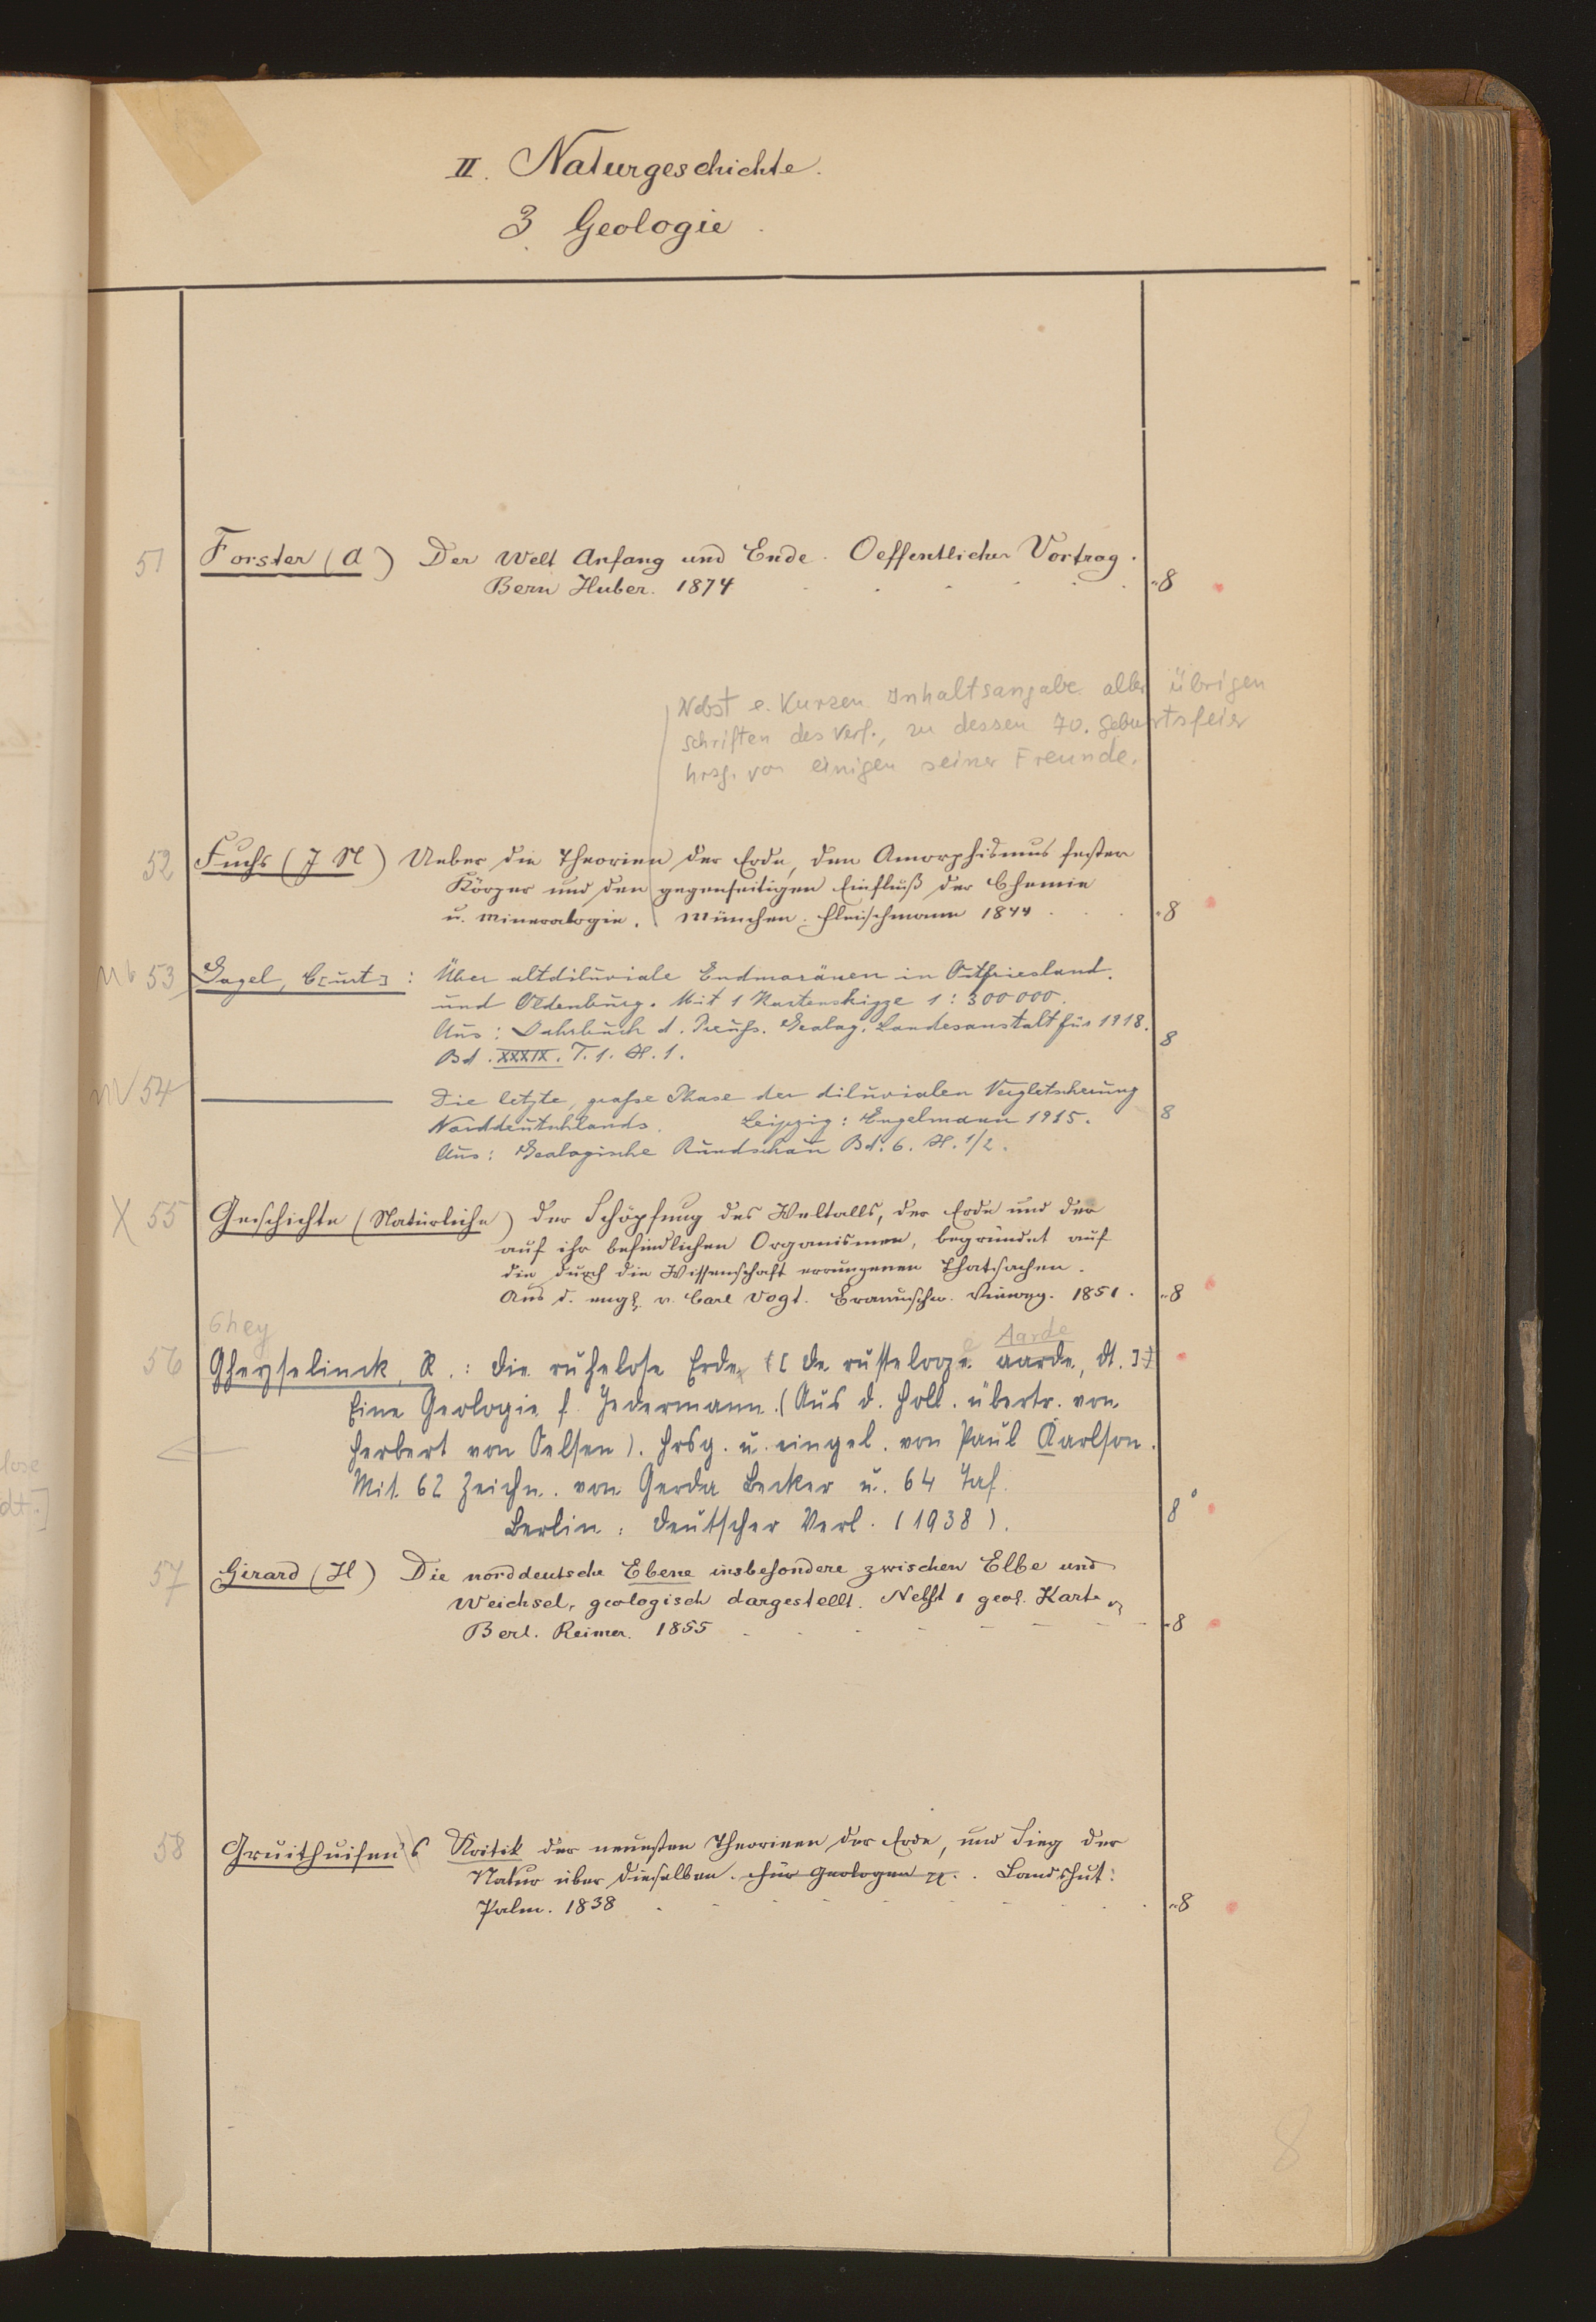 II. Naturgeschichte.
3. Geologie.
51 Forster (A) Der Welt Anfang und Ende. Oeffentlicher Vortrag.
Bern Huber. 1874 8
Nebst e. Kurzen Inhaltsangabe aller übrigen
Schriften des Verf., zu dessen 70. Geburtsfeier
hrsg. von einigen seiner Freunde.
52 Fuchs (J N) Ueber die Theorien der Erde, den Amorphismus fester
Körper und den gegenseitigen Einfluß der Chemie
u. Mineralogie. München. Fleischmann 1844 8
53 Gagel, C[urt]: Über altdiluviale Endmoränen in Ostfriesland
und Oldenburg. Mit 1 Kartenskizze 1:300000.
Aus: Jahrbuch d. Preuß. Geolog. Landesanstalt für 1918.
Bd. XXXIX. T. 1. H. 1. 8
54 Die letzte, große Phase der diluvialen Vergletscherung
Norddeutschlands. Leipzig: Engelmann 1915. 8
Aus: Geologische Rundschau Bd. 6. H. 1/2.
X 55 Geschichte (Natürliche) der Schöpfung des Weltalls, der Erde und der
auf ihr befindlichen Organismen, begründet auf
die durch die Wissenschaft errungenen Thatsachen.
Aus d. engl. v. Carl Vogt. Braunschw. Vieweg. 1851. 8
Ghey
Aarde
56 Gheyselinck, R.: Die ruhelose Erde [De rusteloze aarde, dt.]
Eine Geologie f. Jedermann. (Aus d. Holl. übertr. von
Herbert von Oelsen). Hrsg. u. eingel. von Paul Karlson.
Mit 62 Zeichn. von Gerda Becker u. 64 Taf.
Berlin: Deutscher Verl. (1938). 8°
57 Girard (H) Die norddeutsche Ebene insbesondere zwischen Elbe und
Weichsel, geologisch dargestellt. Nebst 1 geol. Karte
Berl. Reimer. 1855 8
58 Gruithuisen's Kritik der neuesten Theorieen der Erde, und Sieg der
Natur über dieselben. Für Geologen Landshut:
Palm. 1838 8
lose
dt.]
8